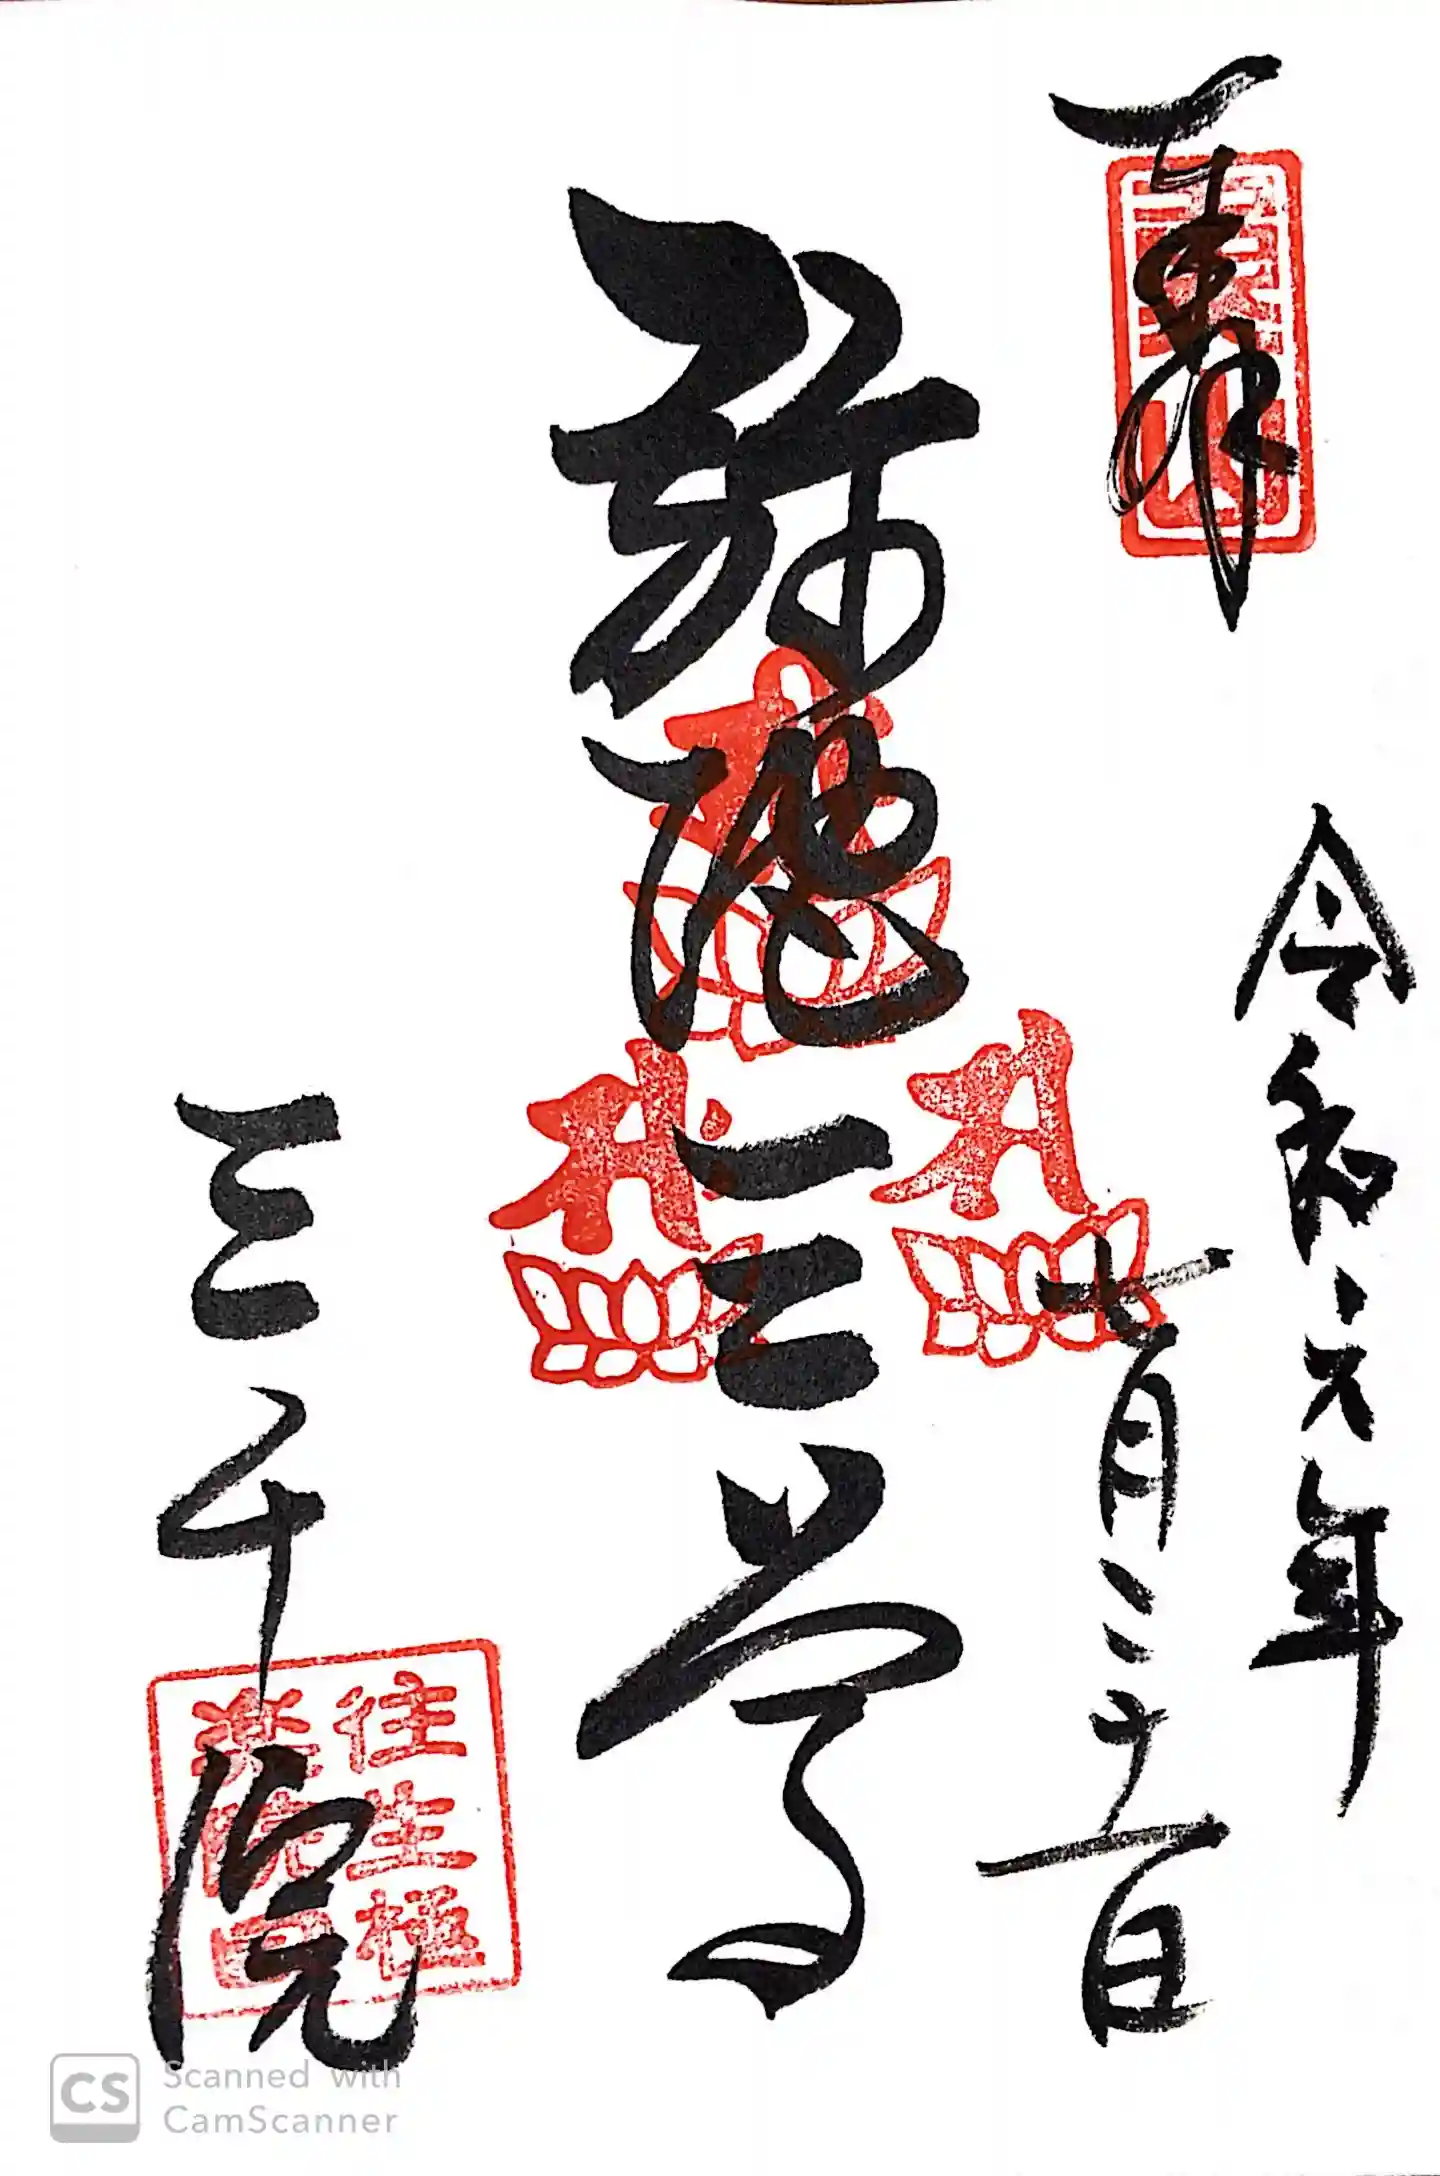 奉拝
令和六年
七月二十一日
弥陀三尊
三千院
往生極
楽院印
CS Scanned with
CamScanner